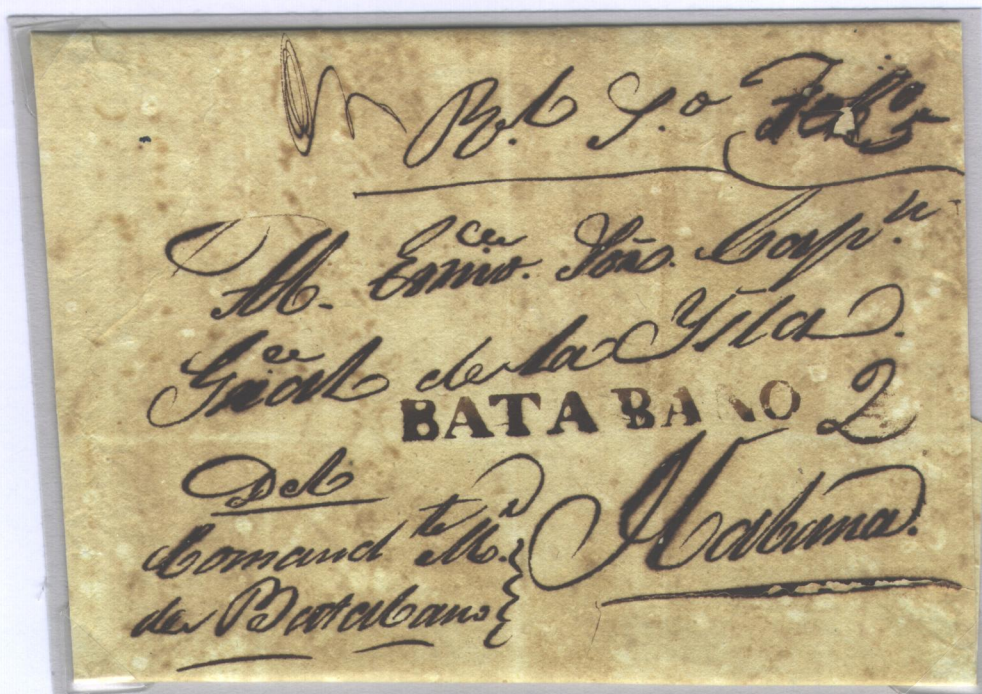 Rl. S.o
Al. Exmo. Sōr. Cap.n
Gral de la Ysla.
BATABANO 2
Del
Comandte M.r
de Batabano
Habana.